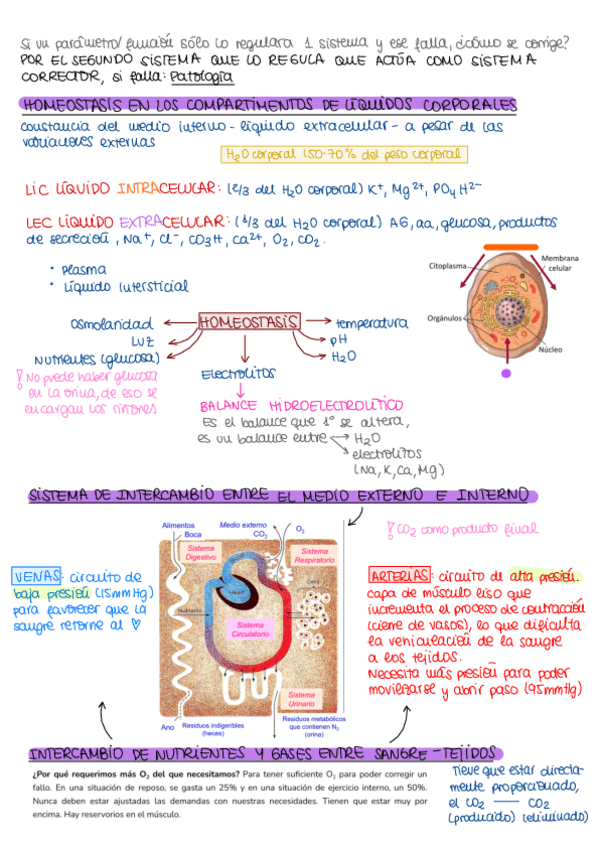 Si un parámetro/función sólo lo regulara 1 sistema y ese falla, ¿cómo se corrige?
POR EL SEGUNDO SISTEMA QUE LO REGULA QUE ACTÚA COMO SISTEMA
CORRECTOR, si falla: Patología
HOMEOSTASIS EN LOS COMPARTIMENTOS DE LÍQUIDOS CORPORALES
constancia del medio interno - líquido extracelular - a pesar de las
variaciones externas
H2O corporal (50-70% del peso corporal
LIC LÍQUIDO INTRACELULAR: (2/3 del H2O corporal) K+, Mg2+, PO4H2-
LEC LÍQUIDO EXTRACELULAR: (1/3 del H2O corporal) AG, aa, glucosa, productos
de secreción, Na+, Cl-, CO3H, Ca2+, O2, CO2.
• Plasma
• Líquido intersticial
Citoplasma
Membrana
celular
Orgánulos
Núcleo
HOMEOSTASIS
Osmolaridad
LUZ
Nutrientes (glucosa)
temperatura
pH
H2O
Electrolitos
! No puede haber glucosa
en la orina, de eso se
encargan los riñones
BALANCE HIDROELECTROLÍTICO
Es el balance que 1º se altera,
es un balance entre H2O
electrolitos
(Na, K, Ca, Mg)
SISTEMA DE INTERCAMBIO ENTRE EL MEDIO EXTERNO E INTERNO
! CO2 como producto final
VENAS: circuito de
baja presión (15mmHg)
para favorecer que la
sangre retorne al ♡
Alimentos
Boca
Medio externo
CO2
O2
Sistema
Digestivo
Sistema
Respiratorio
Nutrientes
Sistema
Circulatorio
Sistema
Urinario
Ano
Residuos indigeribles
(heces)
Residuos metabólicos
que contienen N2
(orina)
ARTERIAS: circuito de alta presión.
capa de músculo liso que
incrementa el proceso de contracción
(cierre de vasos), lo que dificulta
la vehiculación de la sangre
a los tejidos.
Necesita más presión para poder
movilizarse y abrir paso (95mmHg)
INTERCAMBIO DE NUTRIENTES Y GASES ENTRE SANGRE-TEJIDOS
¿Por qué requerimos más O2 del que necesitamos? Para tener suficiente O2 para poder corregir un
fallo. En una situación de reposo, se gasta un 25% y en una situación de ejercicio interno, un 50%.
Nunca deben estar ajustadas las demandas con nuestras necesidades. Tienen que estar muy por
encima. Hay reservorios en el músculo.
Tiene que estar directa-
mente proporcionado,
el CO2 — CO2
(producido) (eliminado)